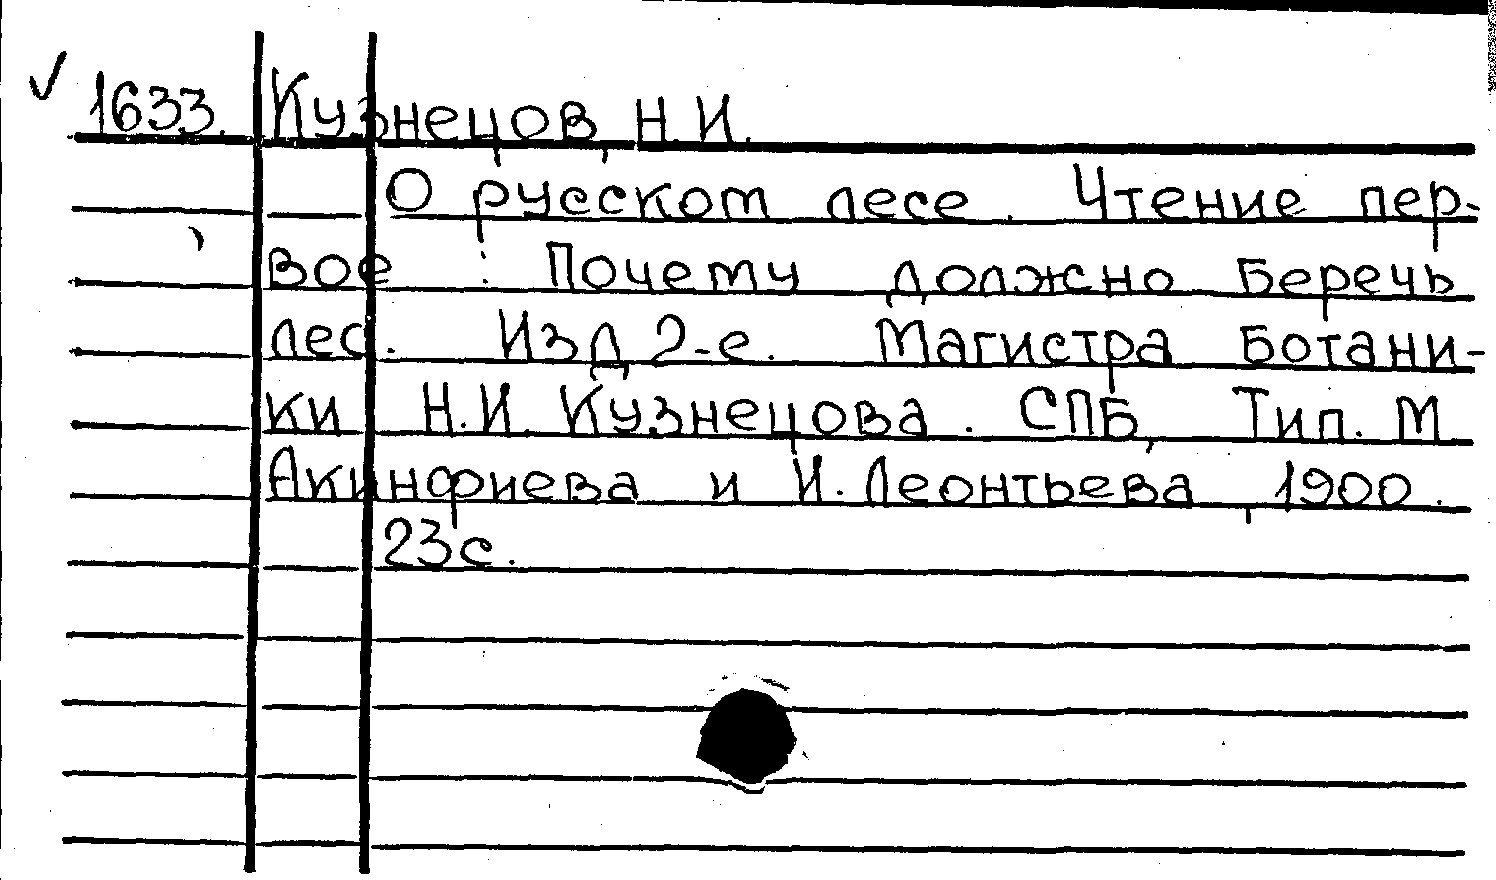 ✓ 1633. Кузнецов, Н.И.
О русском лесе. Чтение пер-
вое: Почему должно беречь
лес. Изд 2-е. Магистра Ботани-
ки Н.И. Кузнецова. СПБ, Тип. М
Акинфиева и И. Леонтьева, 1900.
23с.